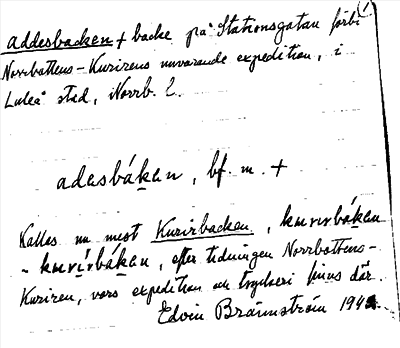 addesbacken + backe på Stationsgatan förbi
Norrbottens-Kurirens nuvarande expedition, i
Luleå stad, Norrb. l.
adasbákan, bf. m. +
Kallas nu mest Kurirbacken, kurirbákan
- kurirbákan, efter tidningen Norrbottens-
Kuriren, vars expedition och tryckeri finns där.
Edvin Brännström 194